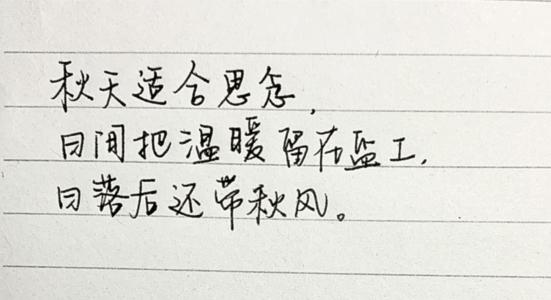 秋天适合思念,
日间把温暖留在监工,
日落后还带秋风。